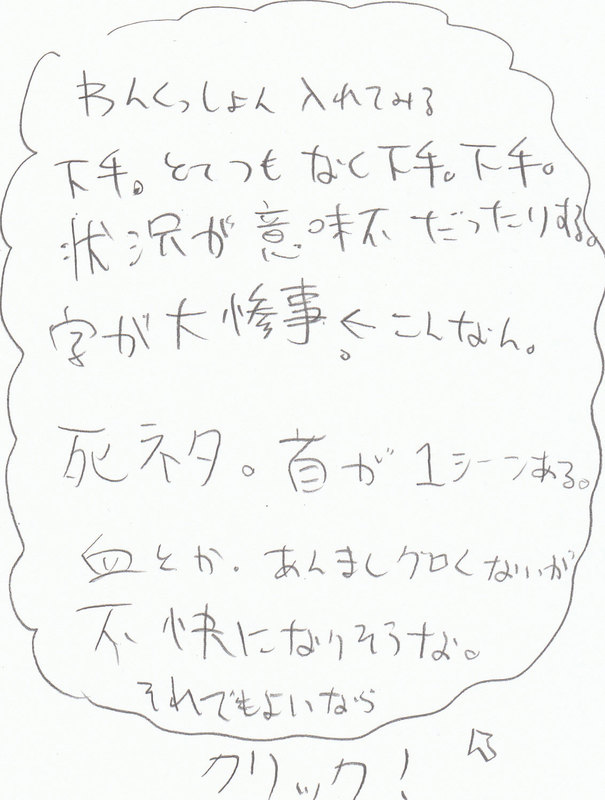 わんくっしょん 入れてみる
下手。とてつもなく下手。下手。
状況が意味不だったりする。
字が大惨事。←こんなん。
死ネタ。首が1シーンある。
血とか。あんましグロくないが
不快になりそうな。
それでもよいなら
クリック!